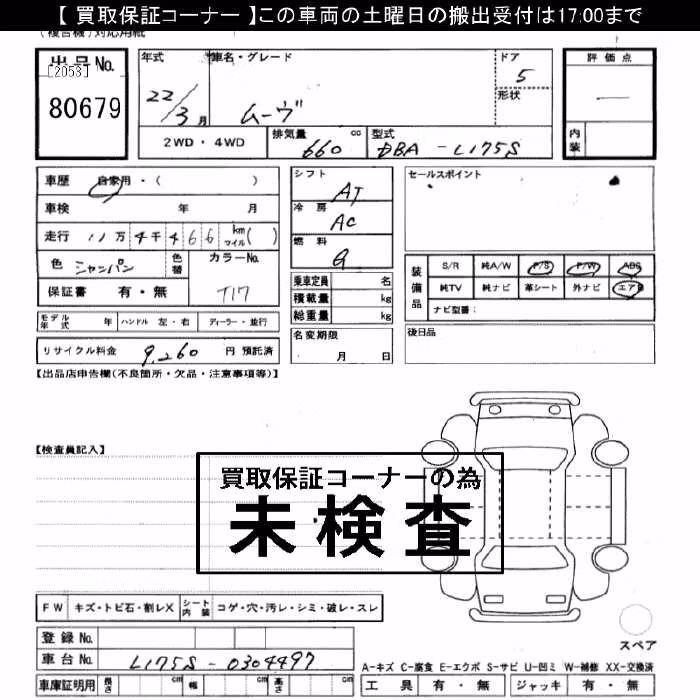 【 買取保証コーナー 】この車両の土曜日の搬出受付は17:00まで
(複合機)対応用紙
出品No.
[2053]
80679
年式
22/3月
車名・グレード
ムーヴ
ドア
5
形状
評価点
—
内装
2WD・4WD
排気量
660 cc
型式
DBA - L175S
車歴 自家用・( )
車検 年 月
走行 11万4千466 km マイル( )
色 シャンパン
色替
カラーNo.
T17
保証書 有・無
モデル年式 年
ハンドル 左・右
ディーラー・並行
リサイクル料金 9,260 円 預託済
シフト
AT
冷房
AC
燃料
G
乗車定員 名
積載量 kg
総重量 kg
名変期限
月 日
セールスポイント
装備品
S/R 純A/W P/S P/W ABS
純TV 純ナビ 革シート 外ナビ エアB
ナビ型番:
後日品
【出品店申告欄(不良箇所・欠品・注意事項等)】
【検査員記入】
買取保証コーナーの為
未検査
FW キズ・トビ石・割レX
シート内装 コゲ・穴・汚レ・シミ・破レ・スレ
登録No.
車台No. L175S - 0304497
車庫証明用 長さ cm 幅 cm 高さ cm
スペア
A-キズ C-腐食 E-エクボ S-サビ U-凹ミ W-補修 XX-交換済
工具 有・無 ジャッキ 有・無